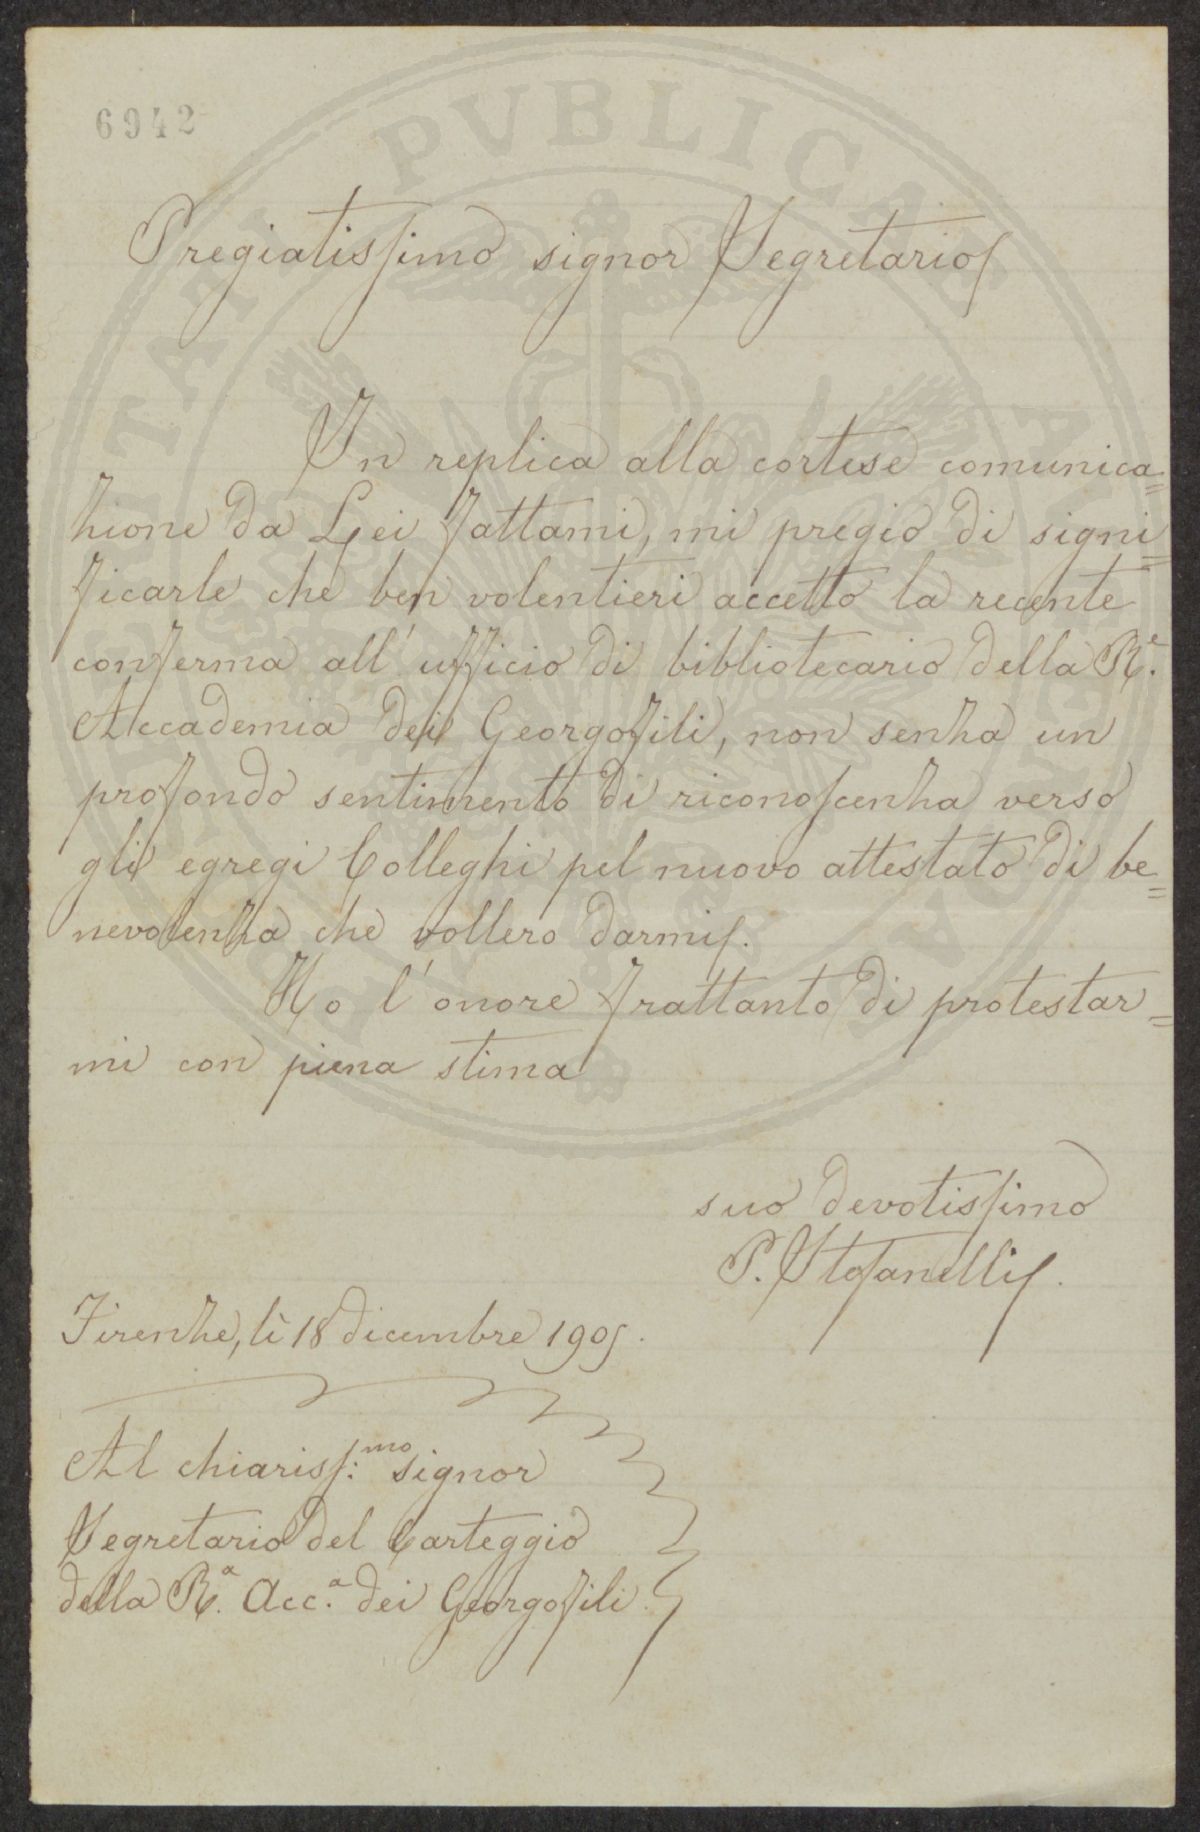 6942
PVBLICAE
Pregiatissimo signor Segretario
In replica alla cortese comunica=
zione da Lei fattami, mi pregio di signi=
ficarle che ben volentieri accetto la recente
conferma all'ufficio di bibliotecario della R.e
Accademia dei Georgofili, non senza un
profondo sentimento di riconoscenza verso
gli egregi Colleghi pel nuovo attestato di be=
nevolenza che vollero darmi.
Ho l'onore frattanto di protestar=
mi con piena stima
suo devotissimo
P. Stefanelli.
Firenze, lì 18 dicembre 1905.
Al chiariss.mo signor
Segretario del Carteggio
della R.a Acc.a dei Georgofili.